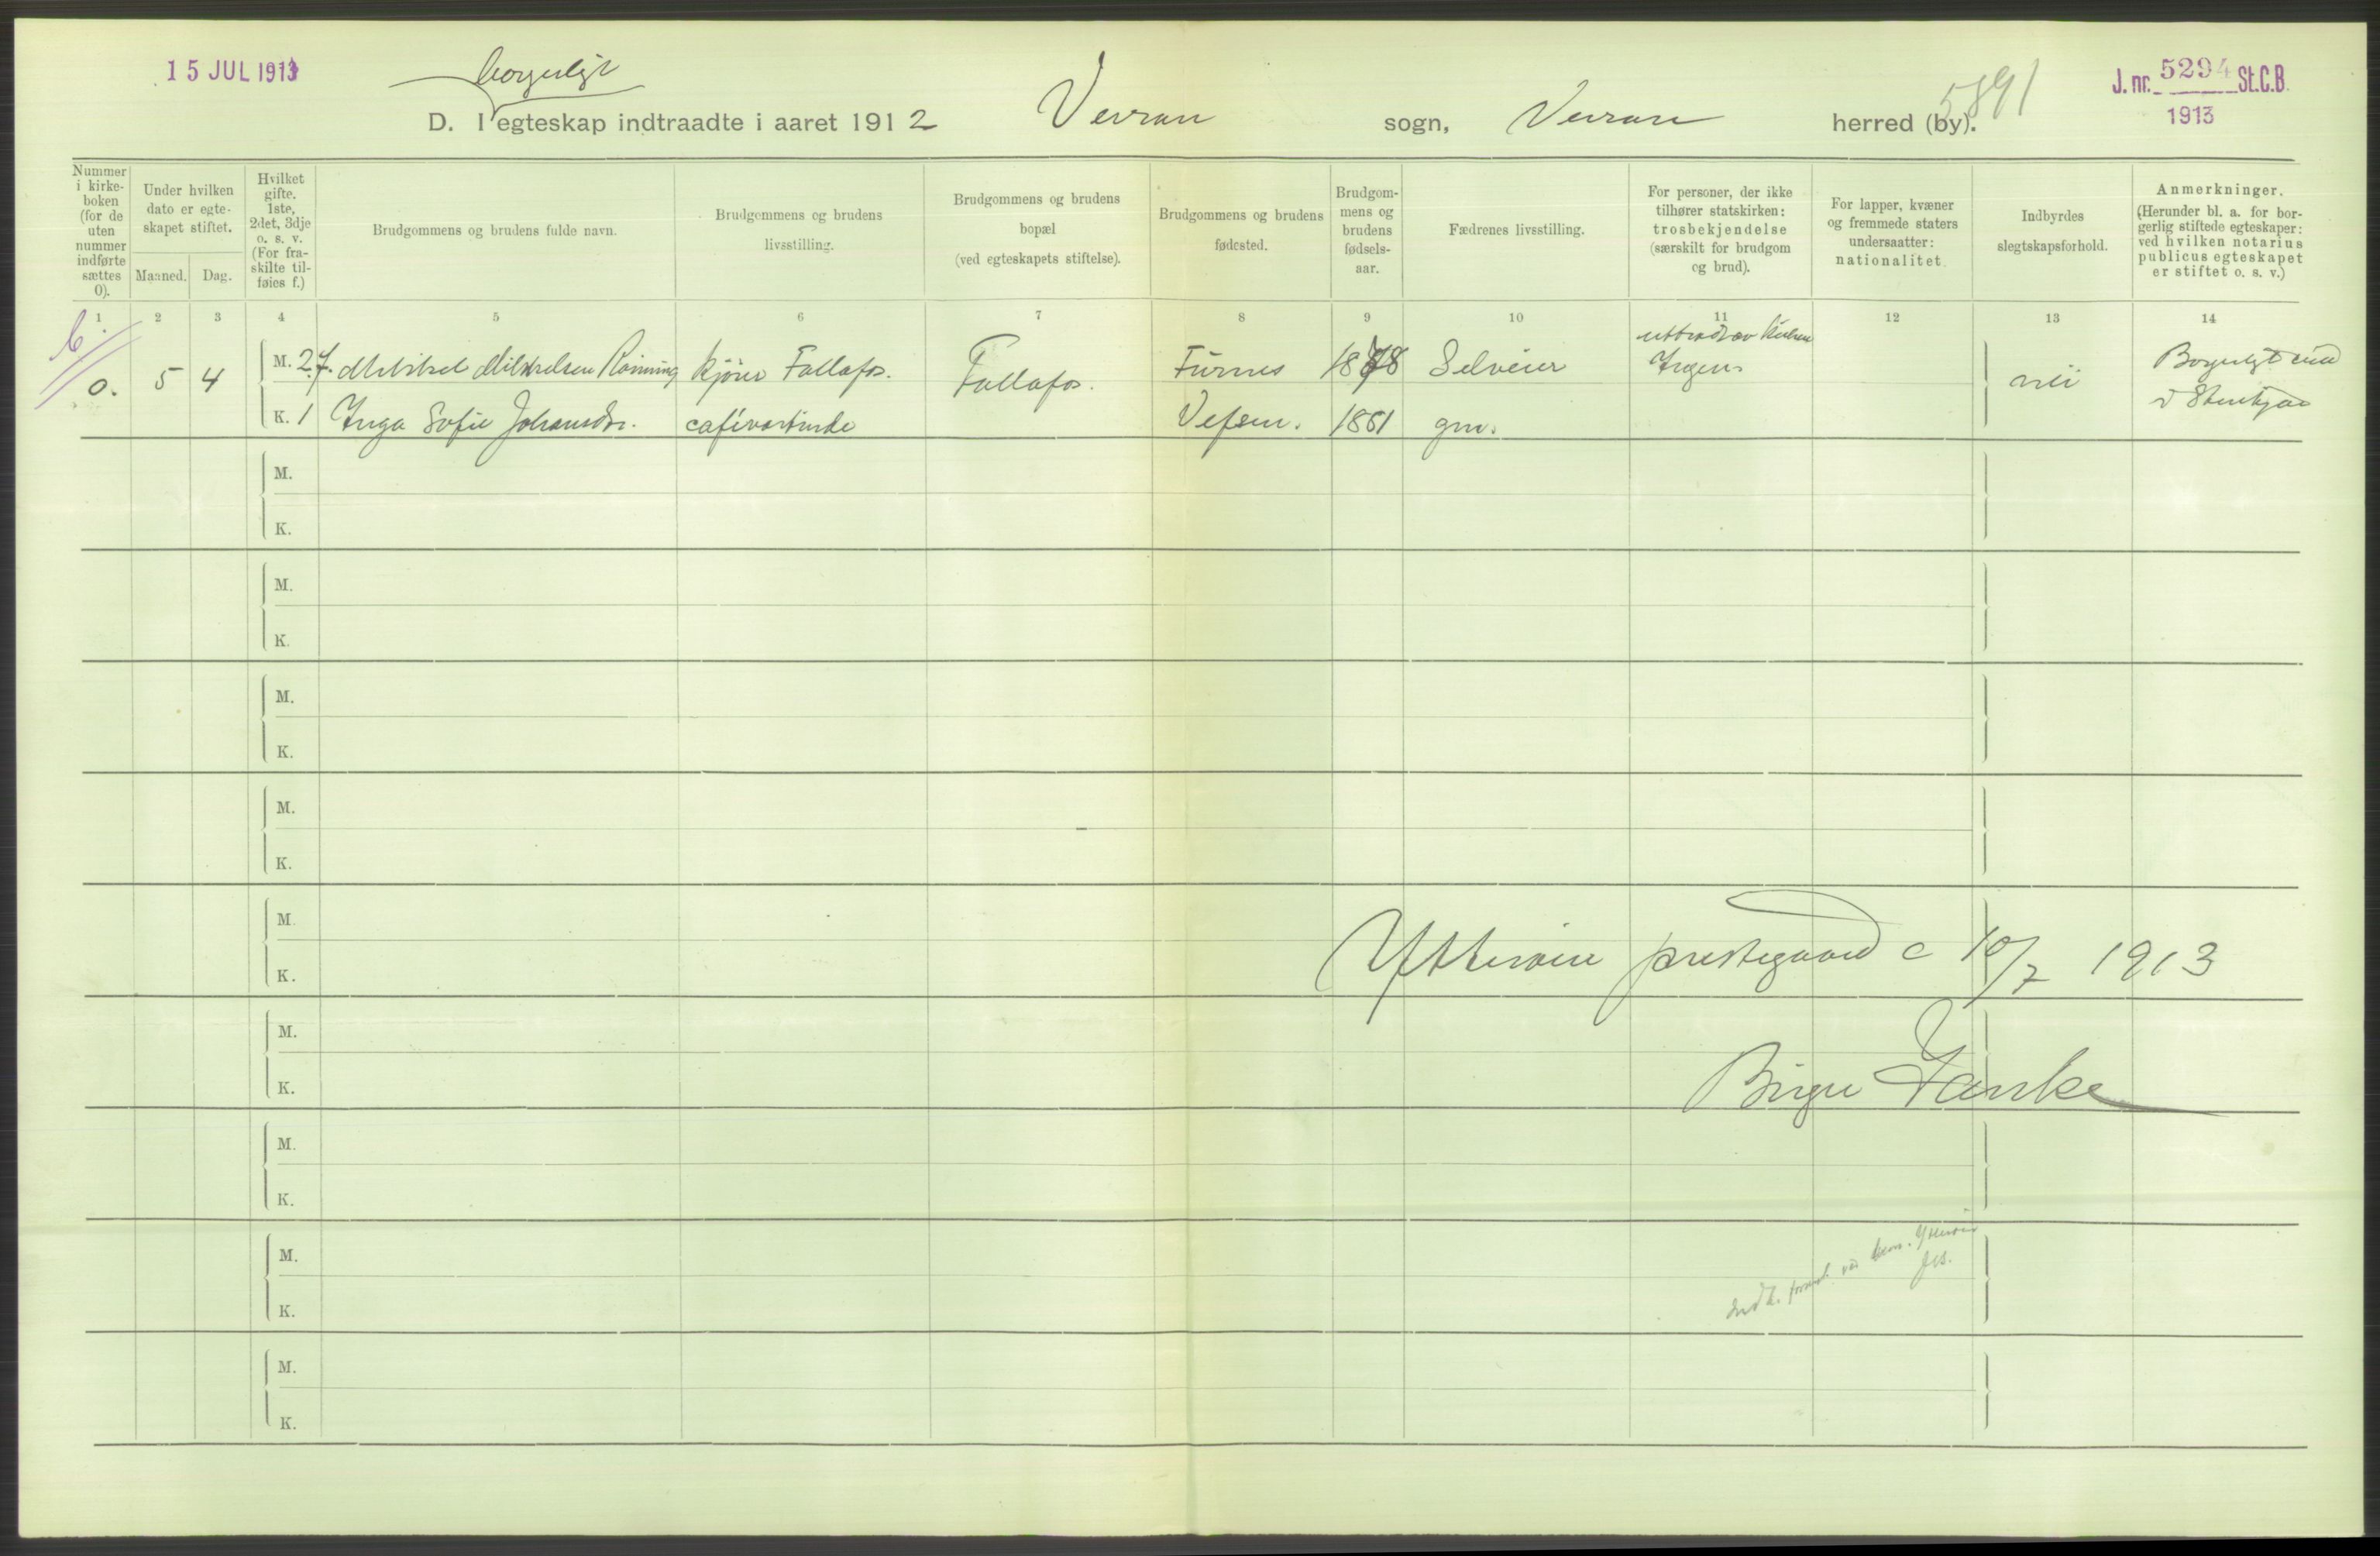 15 JUL 1913
borgerligt
D. I egteskap indtraadte i aaret 1912 Verran sogn, Verran herred (by).
5891
J. nr. 5294 St.C.B.
1913
Nummer i kirkeboken (for de uten nummer indførte sættes 0).
Under hvilken dato er egteskapet stiftet.
Maaned.
Dag.
Hvilket gifte. 1ste, 2det, 3dje o. s. v. (For fraskilte tilføies f.)
Brudgommens og brudens fulde navn.
Brudgommens og brudens livsstilling.
Brudgommens og brudens bopæl (ved egteskapets stiftelse).
Brudgommens og brudens fødested.
Brudgommens og brudens fødselsaar.
Fædrenes livsstilling.
For personer, der ikke tilhører statskirken: trosbekjendelse (særskilt for brudgom og brud).
For lapper, kvæner og fremmede staters undersaatter: nationalitet.
Indbyrdes slegtskapsforhold.
Anmerkninger. (Herunder bl. a. for borgerlig stiftede egteskaper: ved hvilken notarius publicus egteskapet er stiftet o. s. v.)
1 2 3 4 5 6 7 8 9 10 11 12 13 14
0. 5 4
M. 2 f. Mikkel Mikkelsen Rønning kjører Follafos. Follafos. Furnes 1878 Selveier
uttraadt av kirken
Ingen
nei
Borgerligt viet
v Stenkjær
K. 1 Inga Sofie Johansdtr. cafévertinde Vefsen. 1881 gm.
M.
K.
M.
K.
M.
K.
M.
K.
M.
K.
Ytterøen prestegaard 10/7 1913
M.
K.
Birger
M.
K.
M.
K.
M.
K.